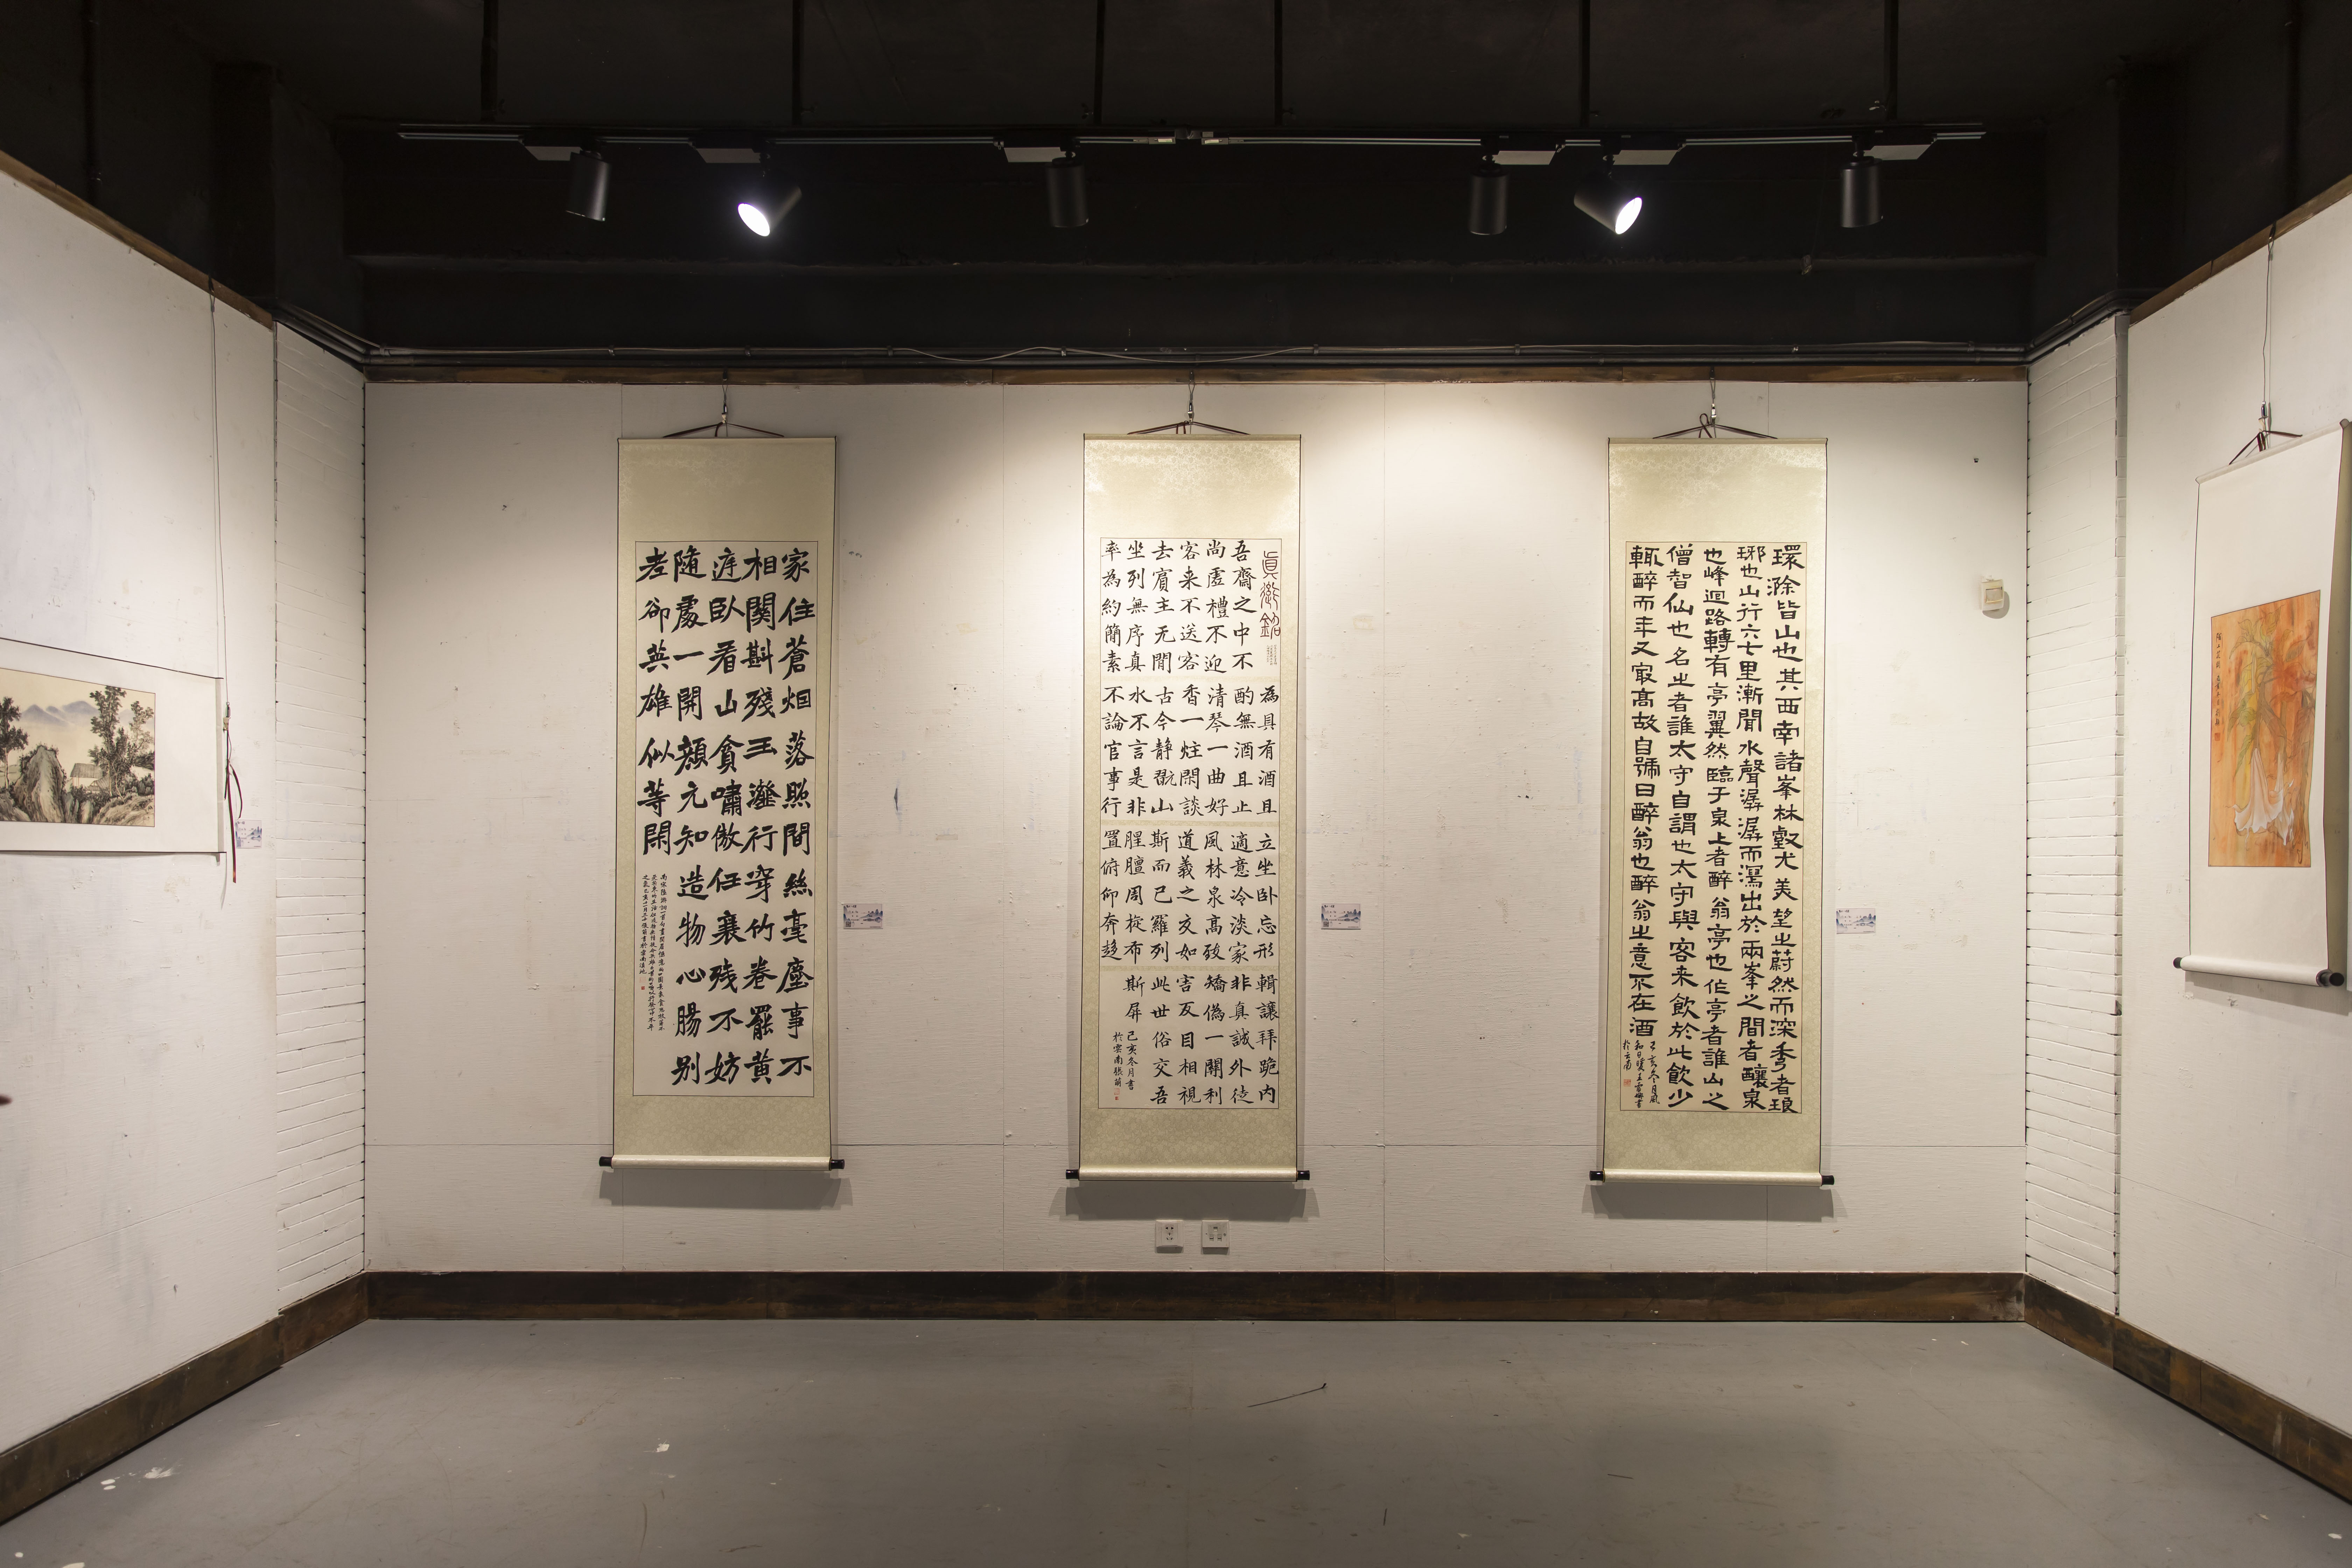 家住蒼烟落照間絲毫塵事不
相關斟殘玉瀣行穿竹卷罷黃
庭臥看山貪嘯傲任衰殘不妨
隨處一開顏元知造物心腸別
老卻英雄似等閑
真率銘
吾齋之中不
尚虛禮不迎
客来不送客
去賓主无間
坐列無序真
率為約簡素
為具有酒且
酌無酒且止
清琴一曲好
香一炷閑談
古今靜翫山
水不言是非
不論官事行
立坐卧忘形
適意冷淡家
風林泉高致
道義之交如
斯而已羅列
腥膻周旋布
置俯仰奔趍
輯讓拜跪内
非真誠外徒
矯偽一關利
害反目相視
此世俗交吾
斯屏
己亥冬月書
於雲南
環滁皆山也其西南諸峯林壑尤美望之蔚然而深秀者琅
琊也山行六七里漸聞水聲潺潺而瀉出於兩峯之間者釀泉
也峰迴路轉有亭翼然臨于泉上者醉翁亭也作亭者誰山之
僧智仙也名之者誰太守自謂也太守與客来飲於此飲少
輒醉而年又最高故自號曰醉翁也醉翁之意不在酒